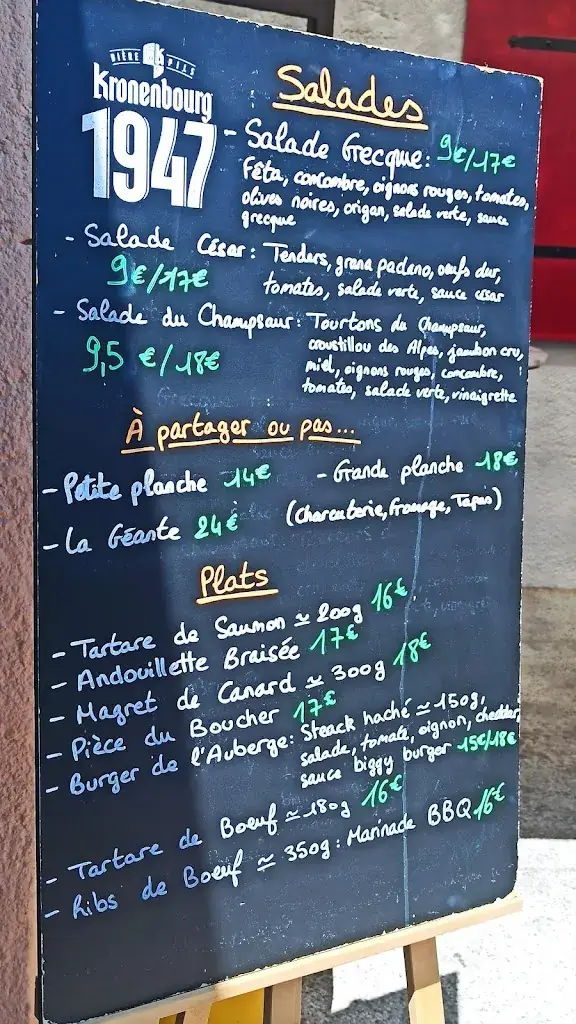 BIÈRE PILS
Kronenbourg
1947
Salades
- Salade Grecque: 9€/17€
Fêta, concombre, oignons rouges, tomates,
olives noires, origan, salade verte, sauce
grecque
- Salade César: Tenders, grana padano, oeufs dur,
9€/17€
tomates, salade verte, sauce césar
- Salade du Champsaur: Tourtons du Champsaur,
9,5 €/18€
croustillou des Alpes, jambon cru,
miel, oignons rouges, concombre,
tomates, salade verte, vinaigrette
À partager ou pas...
- Petite planche 14€ - Grande planche 18€
- La Géante 24€ (Charcuterie, Fromage, Tapas)
Plats
- Tartare de Saumon ≃ 200g 16€
- Andouillette Braisée 17€
- Magret de Canard ≃ 300g 18€
- Pièce du Boucher 17€
- Burger de l'Auberge: Steack haché ≃ 150g,
salade, tomate, oignon, cheddar,
sauce biggy burger 15€/18€
- Tartare de Boeuf ≃ 180g 16€
- Ribs de Boeuf ≃ 350g: Marinade BBQ 16€